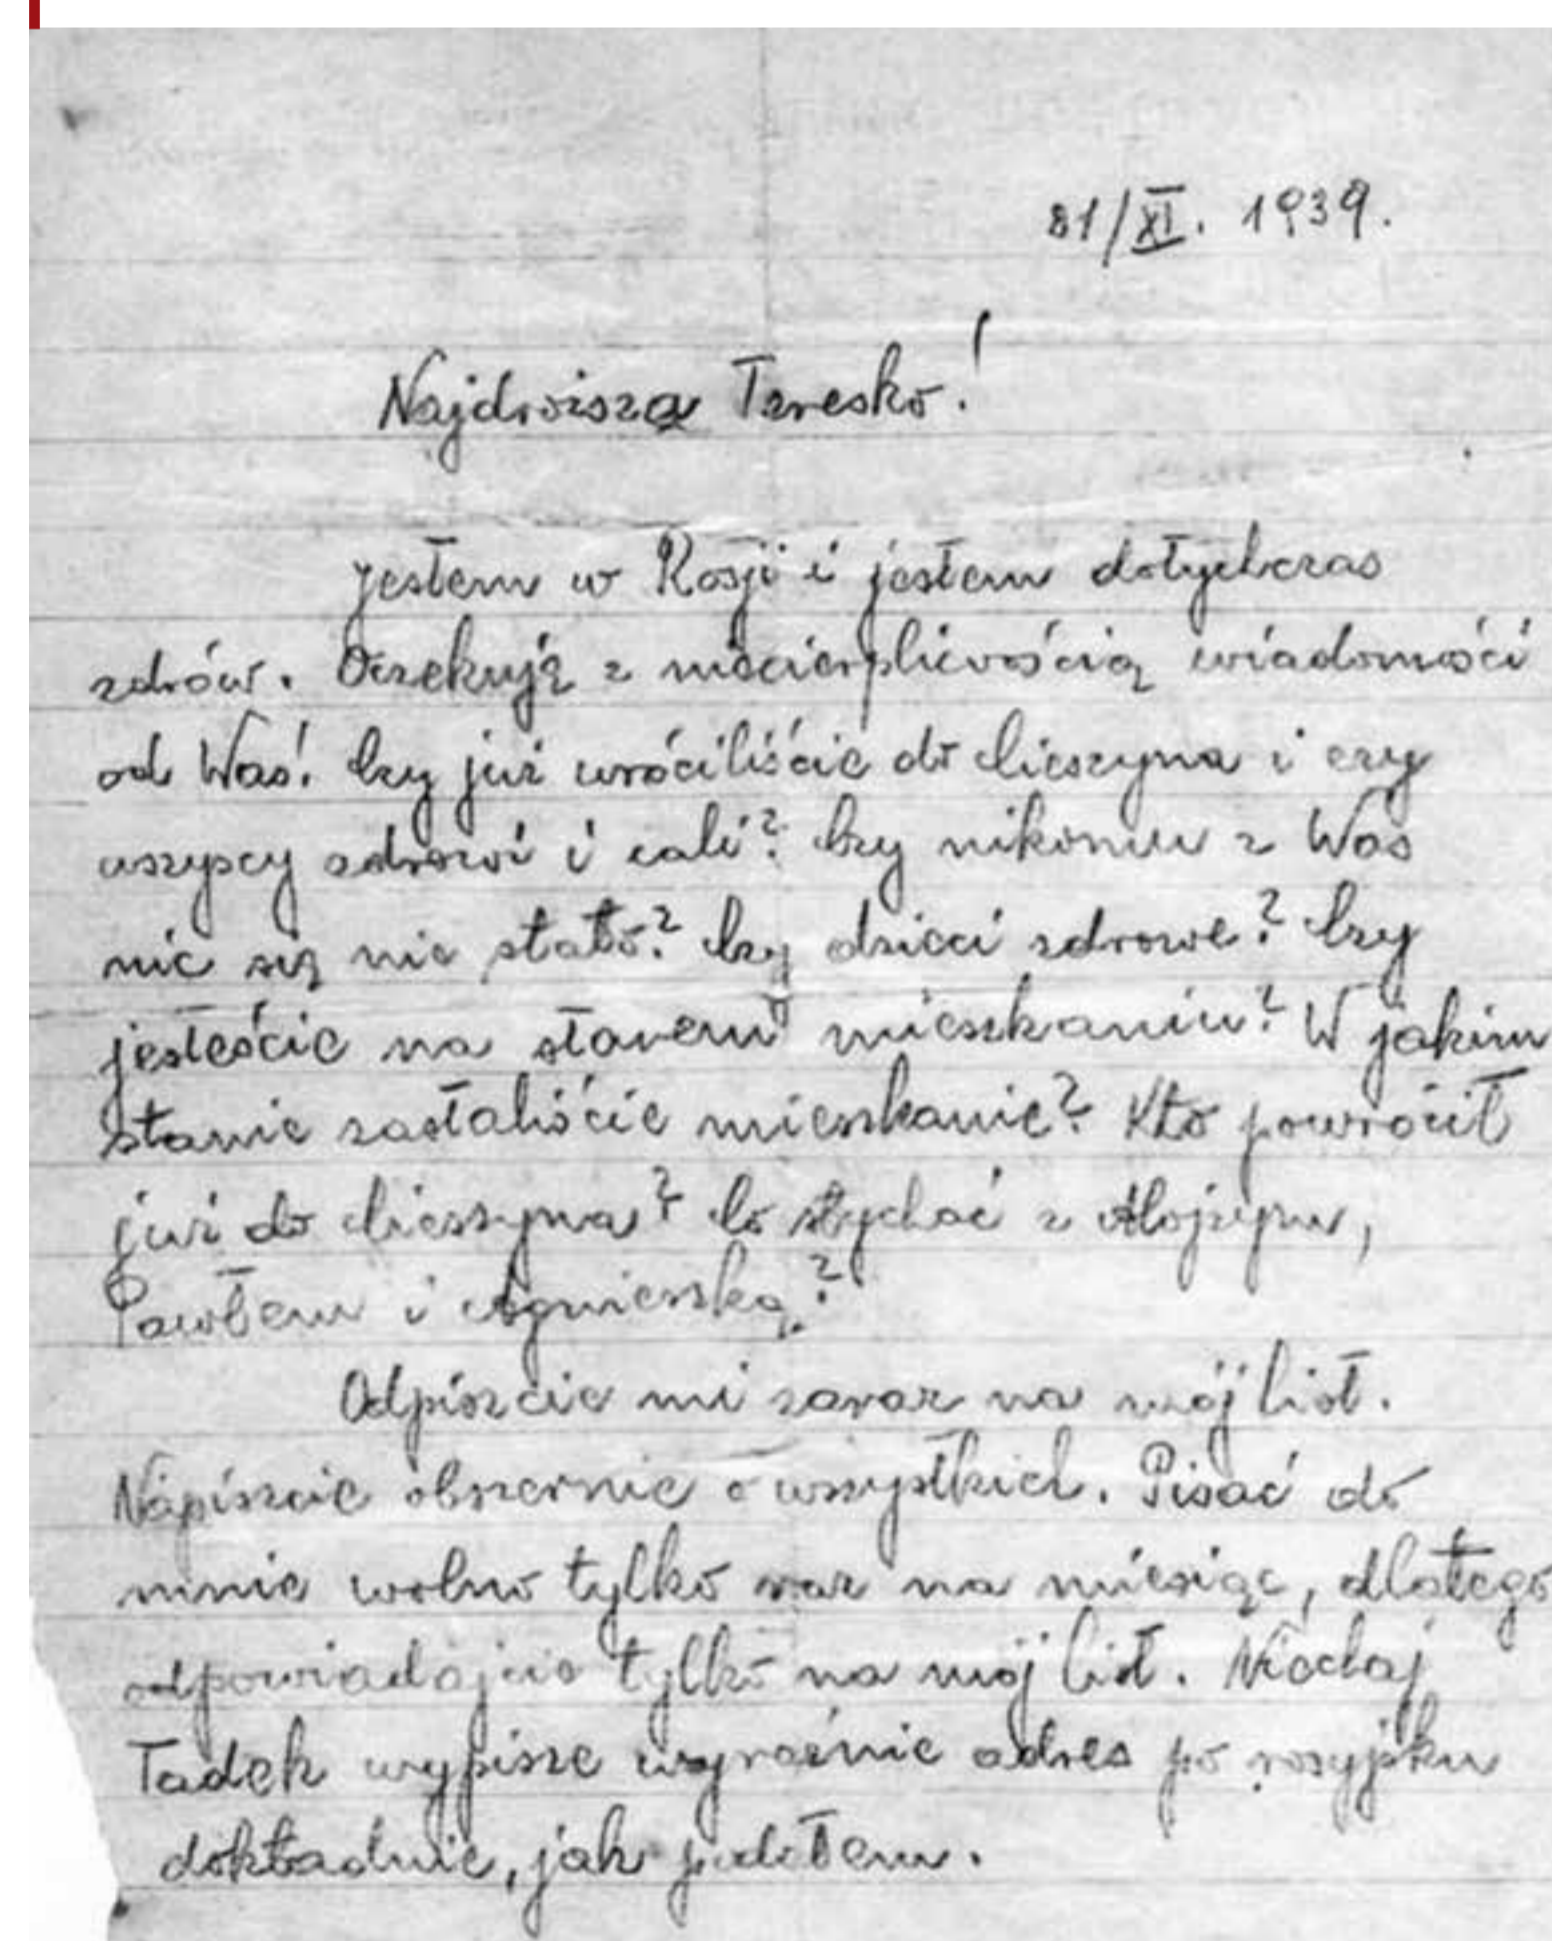 81/XI. 1939.
Najdroższa Teresko!
Jestem w Rosji i jestem dotychczas
zdrów. Oczekuję z niecierpliwością wiadomości
od Was! Czy już wróciliście do Cieszyna i czy
wszyscy zdrowi i cali? Czy nikomu z Was
nic się nie stało? Czy dzieci zdrowe? Czy
jesteście na starem mieszkaniu? W jakim
stanie zastaliście mieszkanie? Kto powrócił
już do Cieszyna? Co słychać z Alojzym,
Pawłem i Agnieszką?
Odpiszcie mi zaraz na mój list.
Napiszcie obszernie o wszystkich. Pisać do
mnie wolno tylko raz na miesiąc, dlatego
odpowiadajcie tylko na mój list. Niechaj
Tadek wypisze wyraźnie adres po rosyjsku
dokładnie, jak podałem.